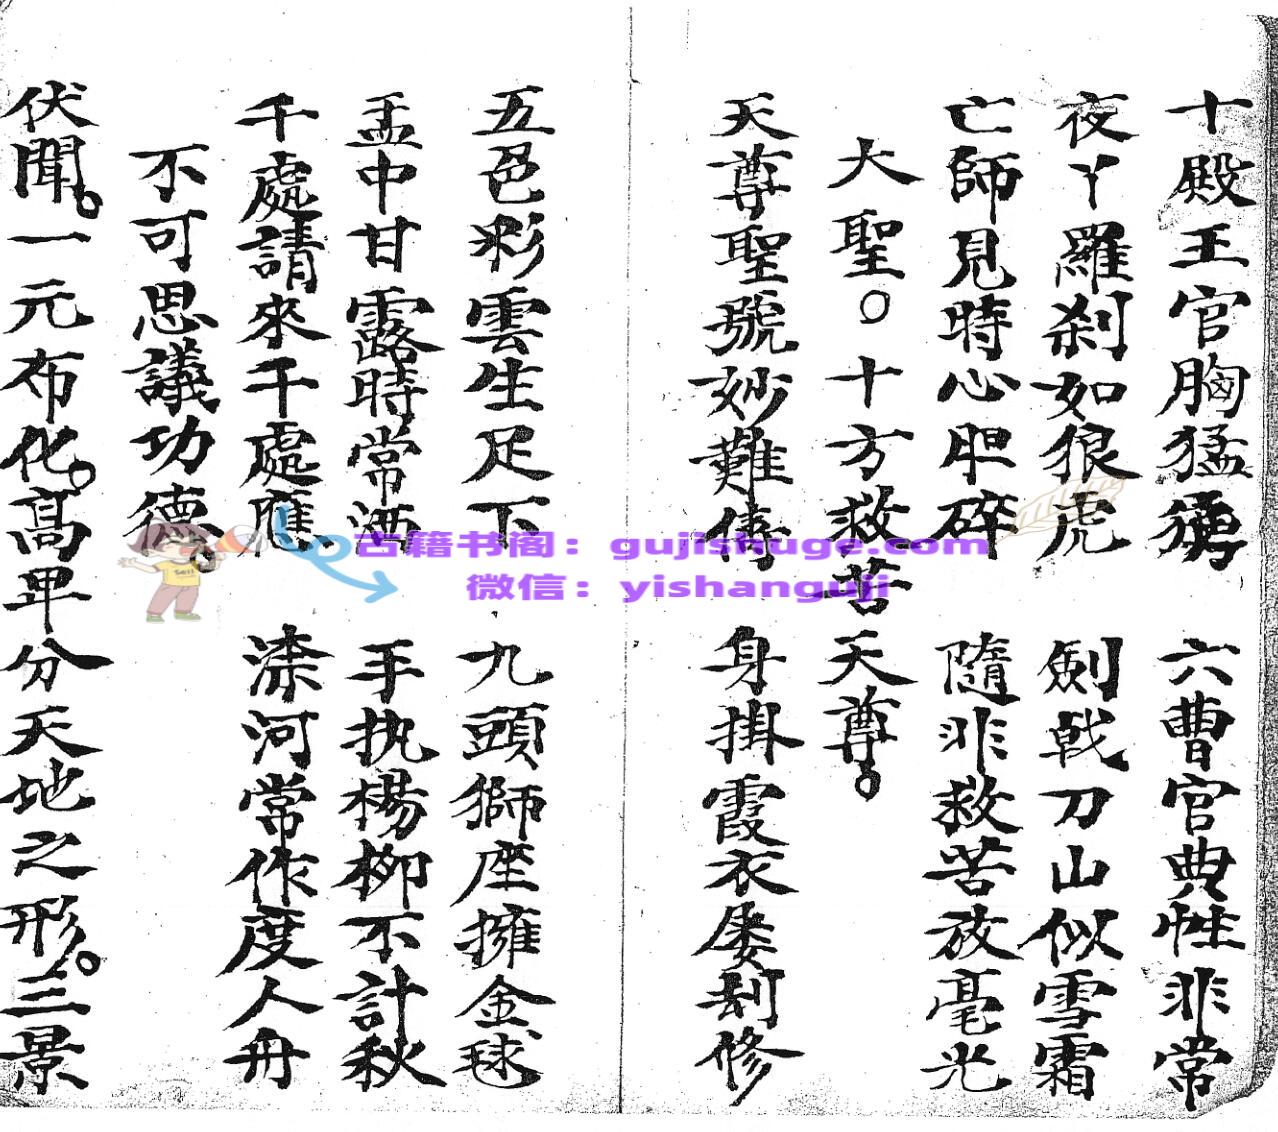 十殿王官胸猛勇　六曹官典性非常
夜丫羅刹如狼虎　劍戟刀山似雪霜
亡師見時心胆碎　隨非救苦放毫光
大聖。十方救苦天尊。
天尊聖號妙難傳　身掛霞衣屡刼修
五色彩雲生足下　九頭獅座擁金毬
盂中甘露時常洒　手执楊柳不計秋
千處請來千處應　㴃河常作度人舟
不可思議功德
伏聞。一元布化。高卑分天地之形。三景
古籍书阁：gujishuge.com
微信：yishanguji